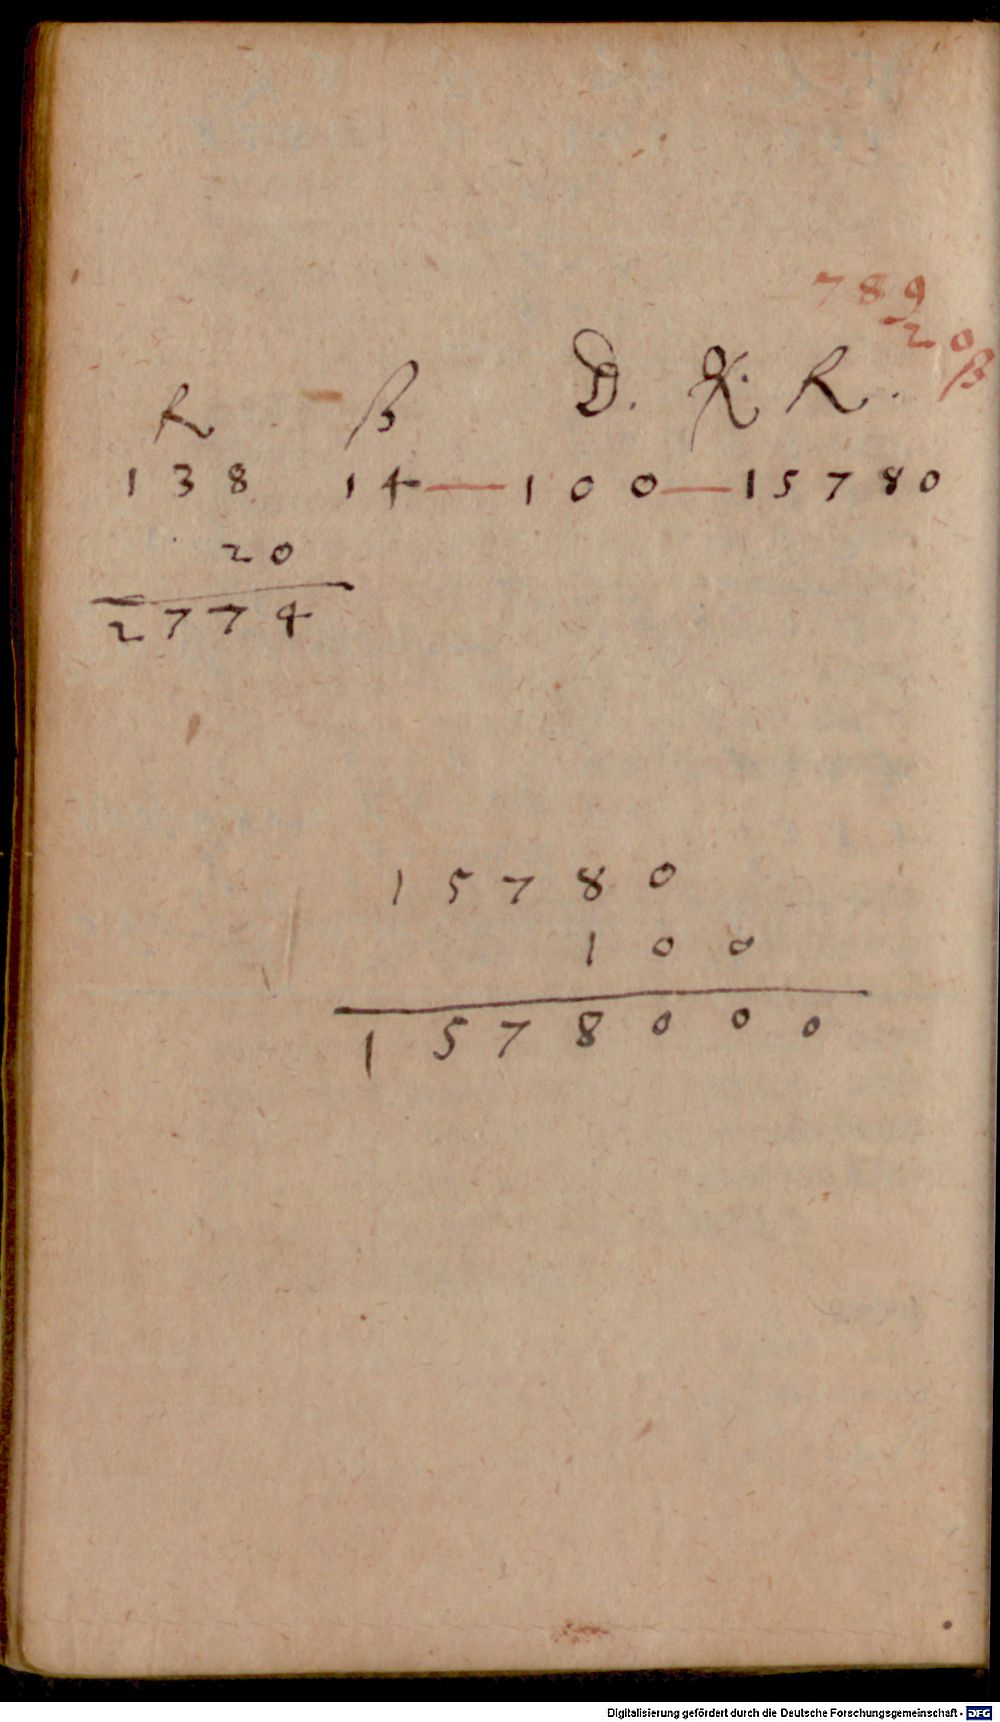 789
20 ß
R ß D. K. R.
138 14 — 100 — 15780
20
2774
15780
100
1578000
Digitalisierung gefördert durch die Deutsche Forschungsgemeinschaft - DFG